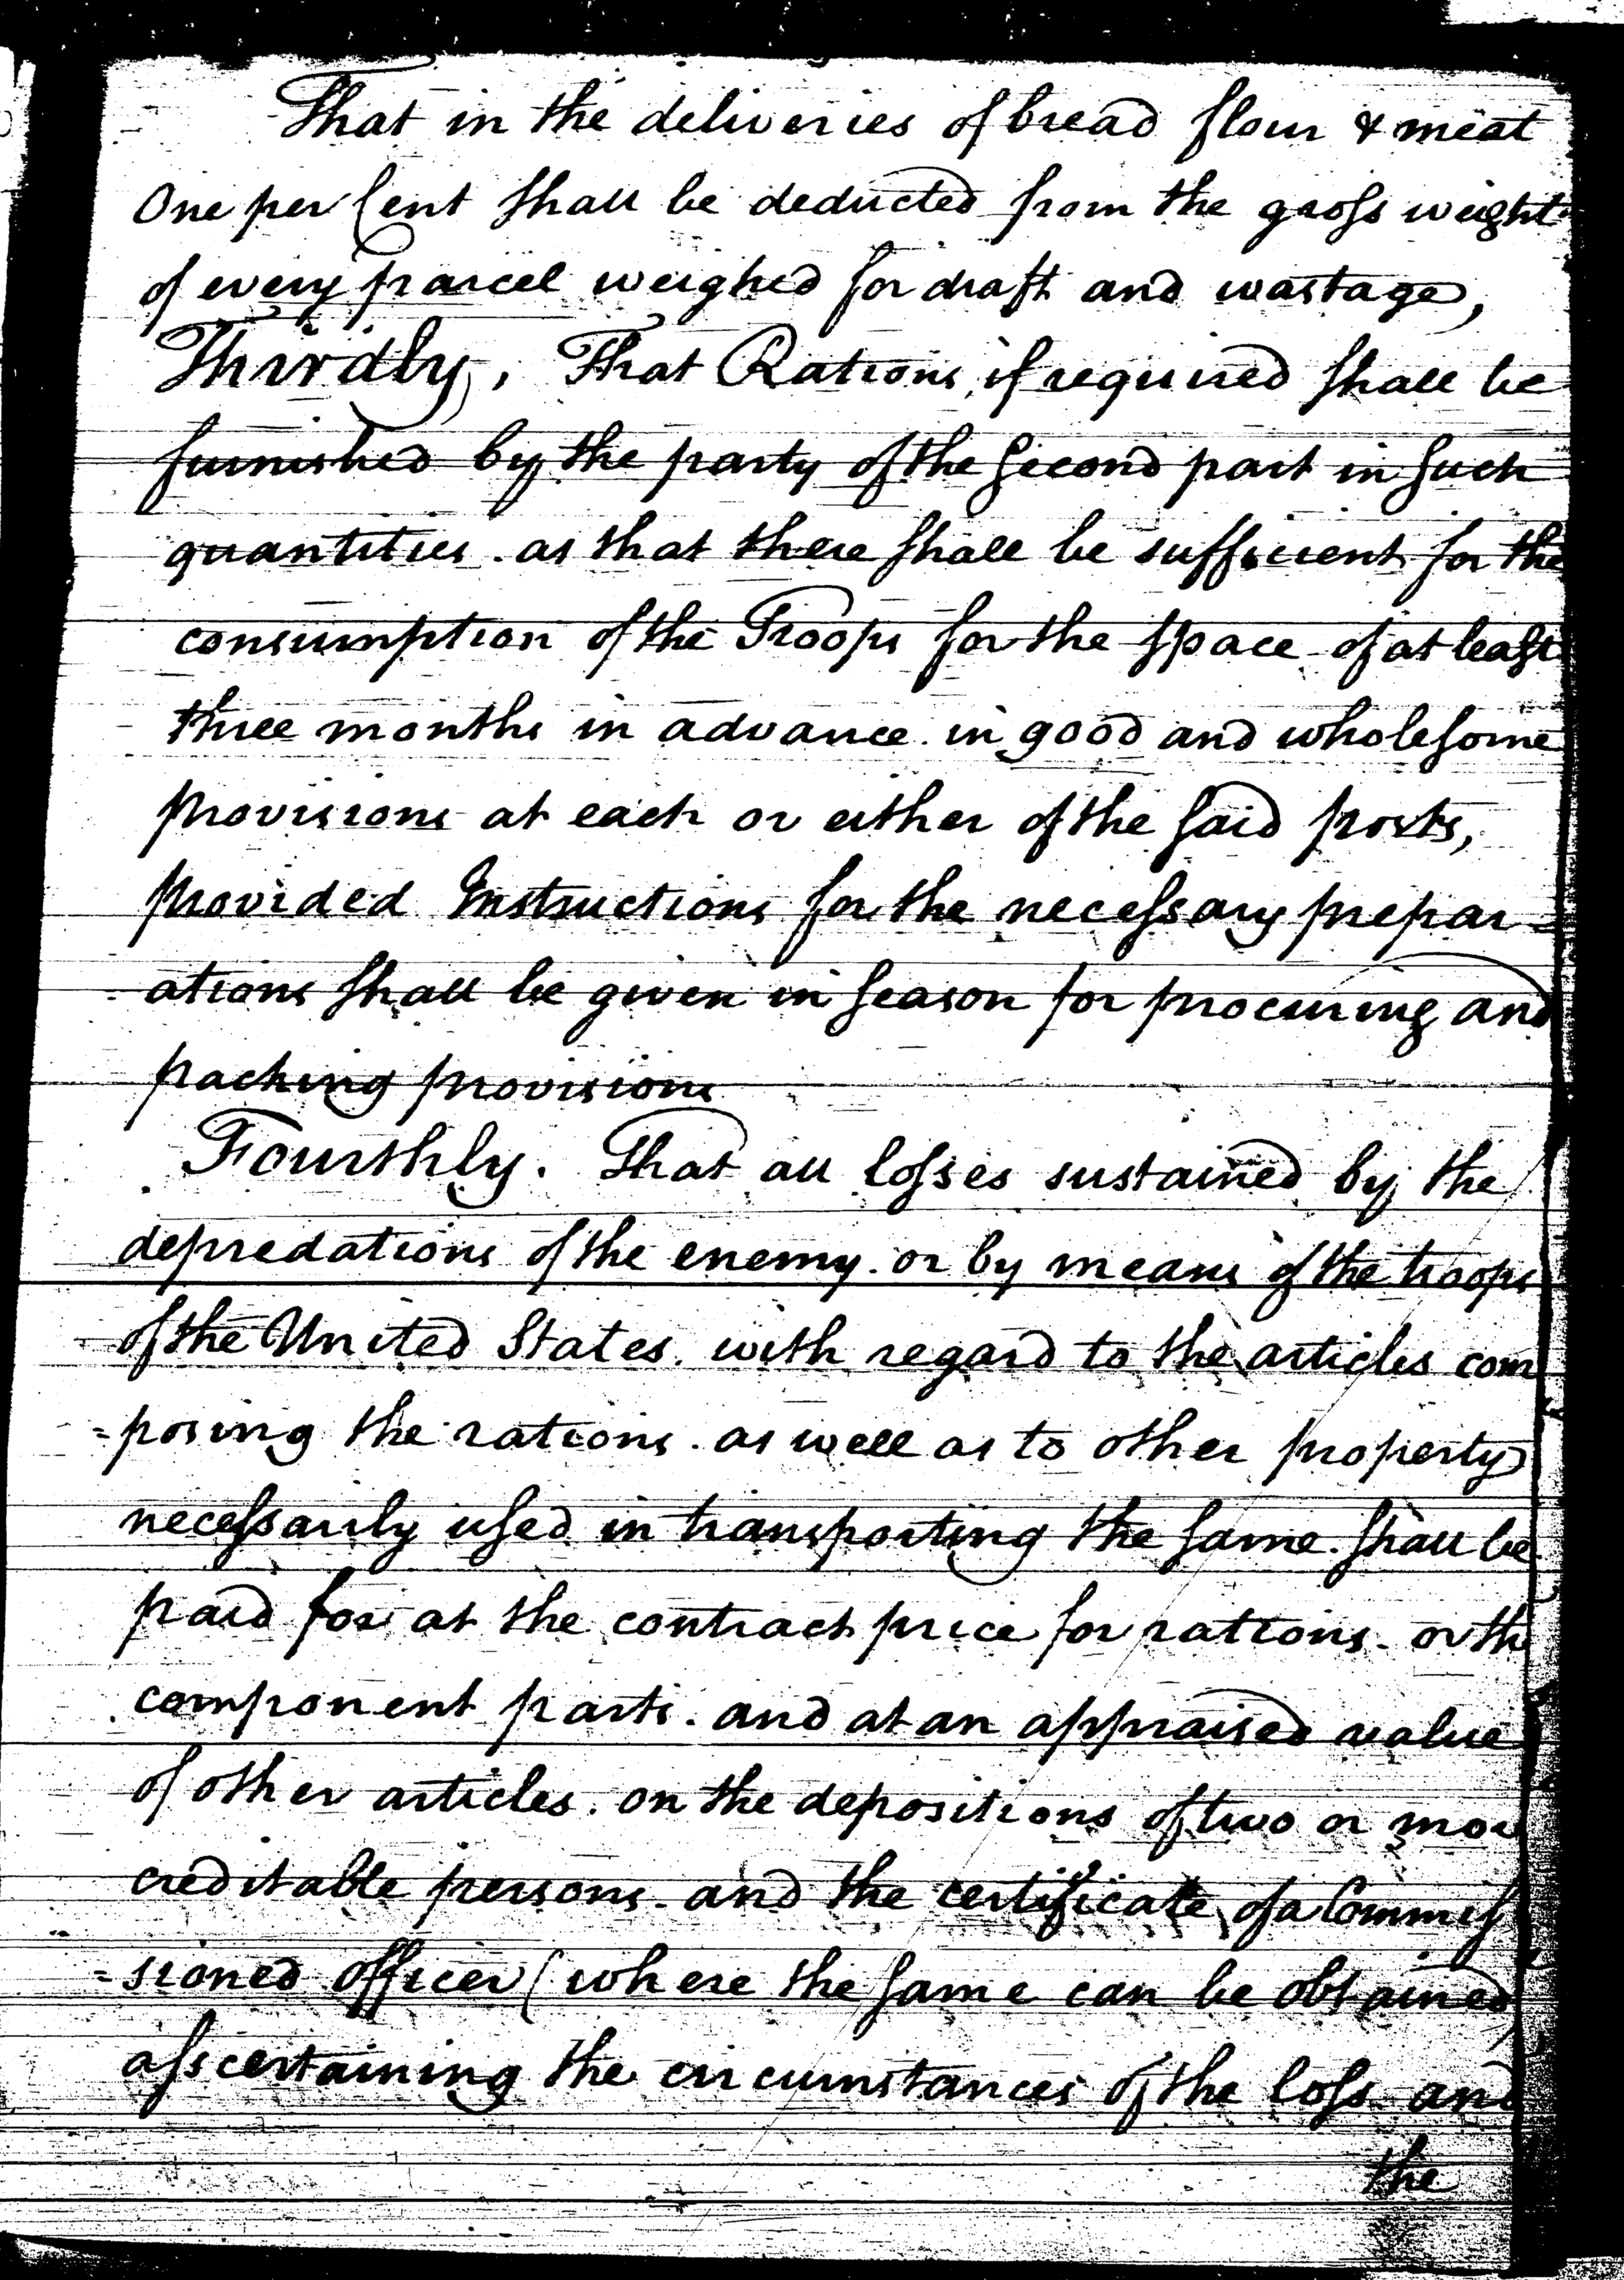 That in the deliveries of bread flour & meat
One per Cent shall be deducted from the gross weight
of every parcel weighed for draft and wastage,
Thirdly, That Rations, if required shall be
furnished by the party of the second part in such
quantities. as that there shall be sufficient for the
consumption of the Troops for the space of at least
three months in advance. in good and wholesome
provisions at each or either of the said posts,
provided Instructions for the necessary prepar-
ations shall be given in season for procuring and
packing provisions
Fourthly. That all losses sustained by the
depredations of the enemy. or by means of the troops
of the United States. with regard to the articles com
=posing the rations. as well as to other property
necessarily used in transporting the same. shall be
paid for at the contract price for rations. or the
component parts. and at an appraised value
of other articles. on the depositions of two or more
creditable persons. and the certificate of a Commis
=sioned officer (where the same can be obtained)
asscertaining the circumstances of the loss and
the